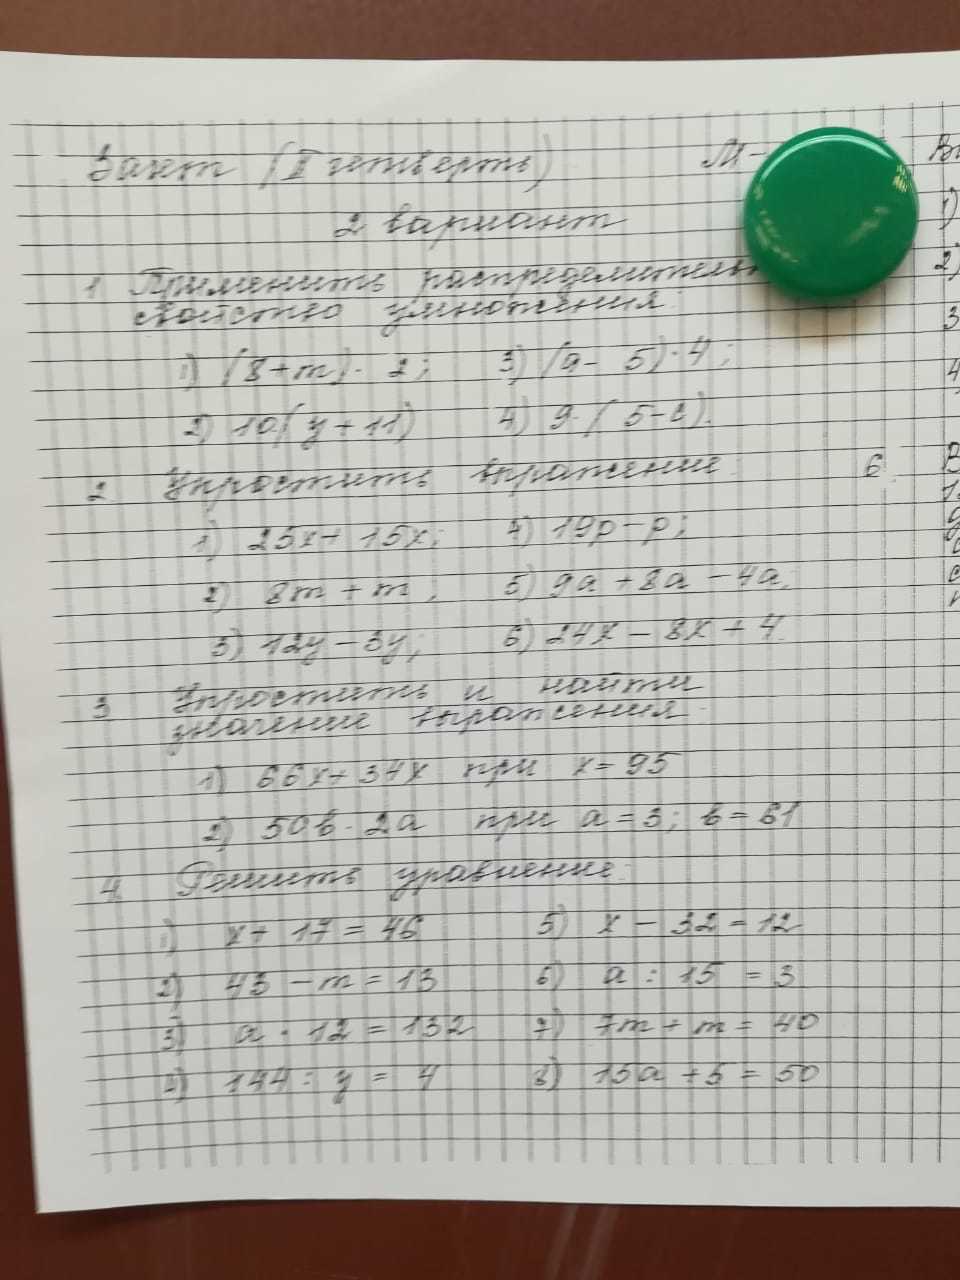 Зачет (II четверть) М-
2 вариант
1 Применить распределительн
свойство умножения:
1) (8+m)· 2; 3) (a- 5)·4;
2) 10·(y+11) 4) 9·(5-c).
2 Упростить выражение:
1) 25x+ 15x; 4) 19p-p;
2) 8m + m; 5) 9a +8a -4a;
3) 12y-3y; 6) 24x - 8x + 4.
3 Упростить и найти
значение выражения:
1) 66x+ 34x при x=95
2) 50в·2а при а=3; в=61
4. Решить уравнение:
1) x+ 17 = 46 5) x - 32 = 12
2) 43 -m = 13 6) a : 15 = 3
3) a · 12 = 132 7) 7m + m = 40
4) 144 : y = 4 8) 15a +5 = 50
6.
1)
2)
3
4